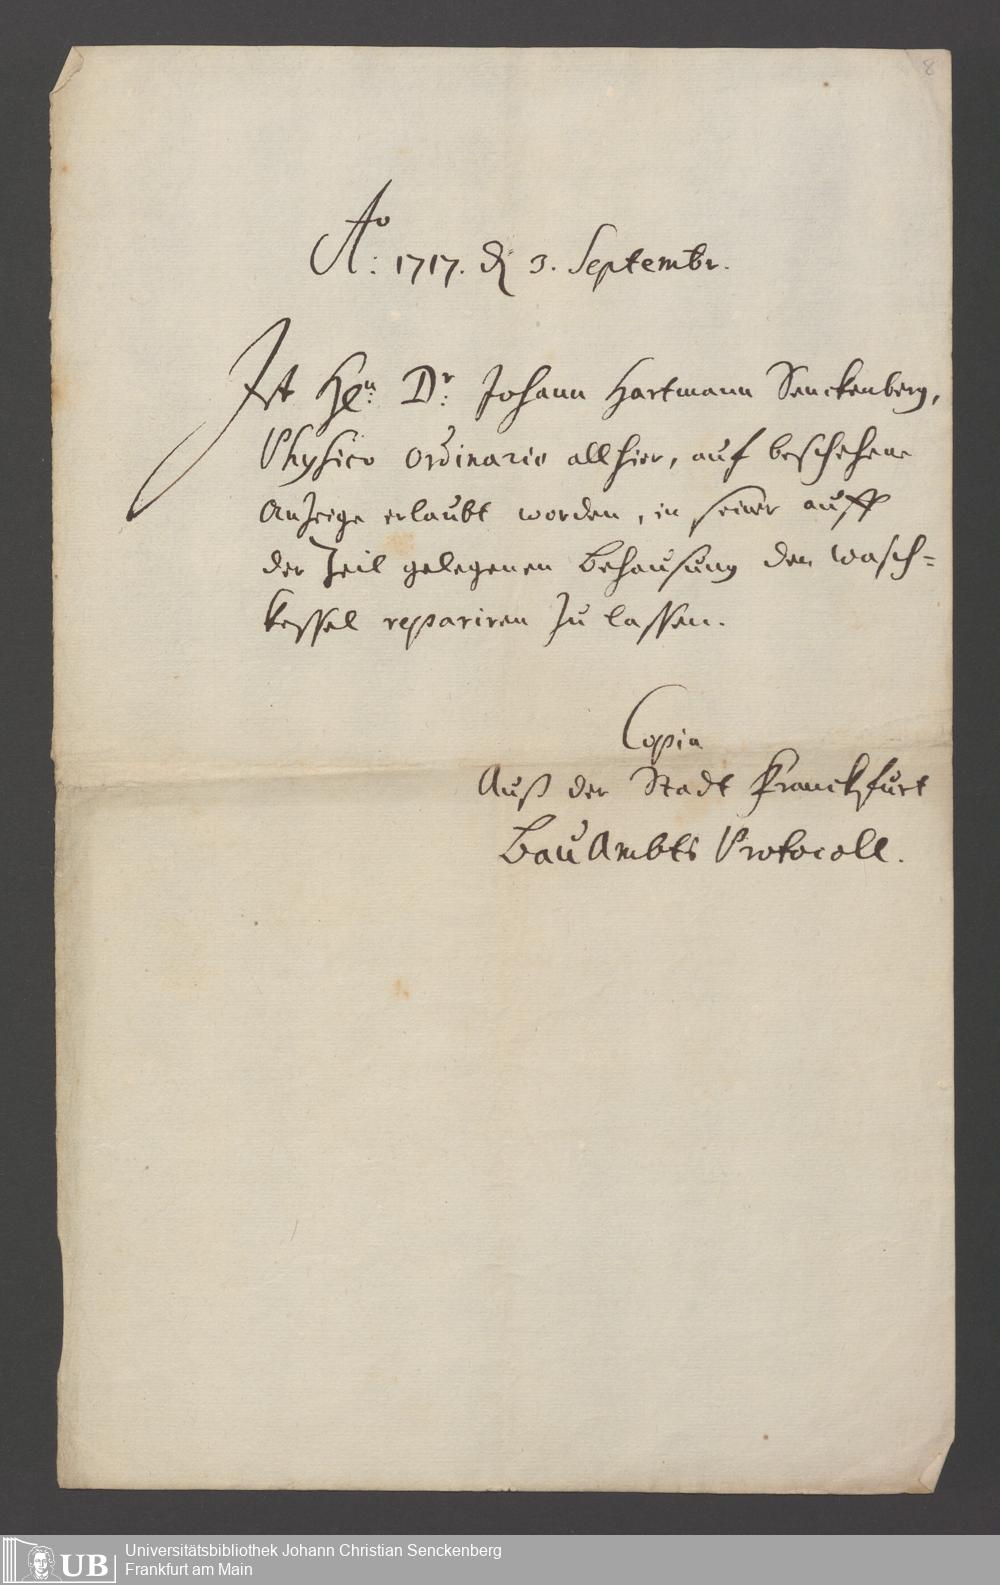 8
Ao: 1717. d 3. Septembr.
Ist Hen: Dr: Johann Hartmann Senckenberg,
Physico ordinario allhier, auf beschehene
Anzeige erlaubt worden, in seiner auff
der Zeil gelegenen Behausung den Wasch=
kessel repariren zu lassen.
Copia
Auß der Stadt Franckfurt
Bau Ambts Protocoll.
UB
Universitätsbibliothek Johann Christian Senckenberg
Frankfurt am Main